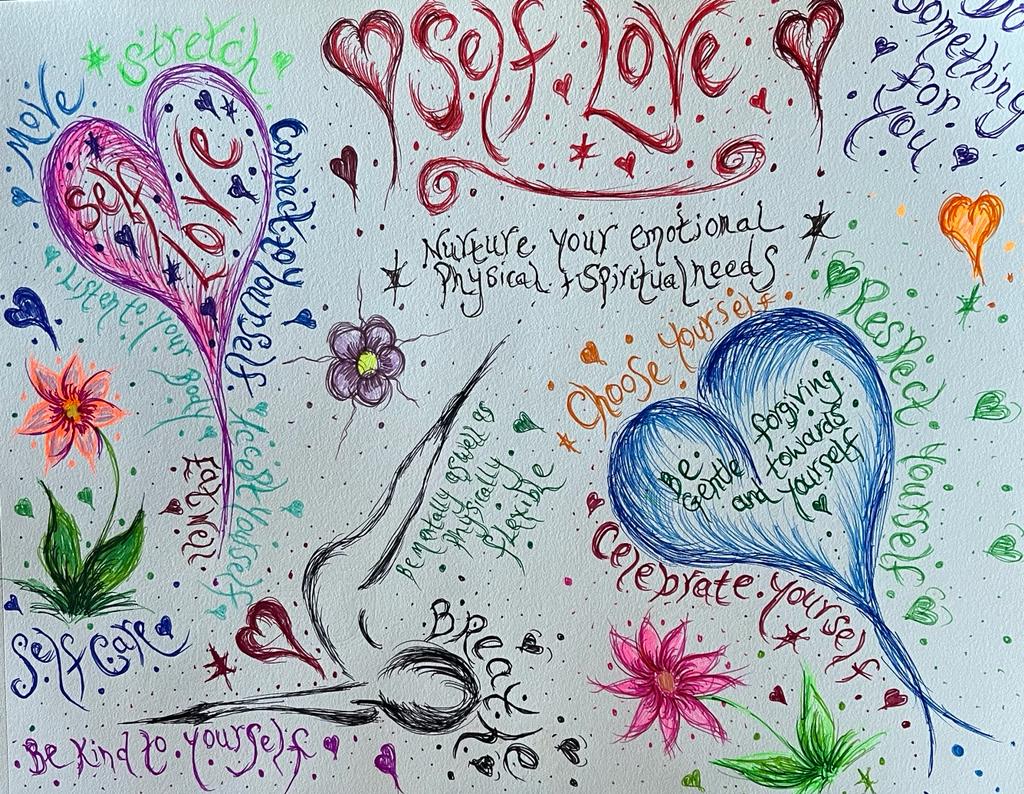 Self Love
Do
Something
for
You
Stretch
Move
Self
Love
Connect to yourself
Nurture your emotional
Physical + Spiritual needs
Listen to your body
Choose Yourself
Respect Yourself
Be
Gentle
and
forgiving
towards
yourself
Accept Yourself
Eat Well
Be mentally as well as
Physically
flexible
Celebrate yourself
Self Care
Breathe
Be Kind to yourself